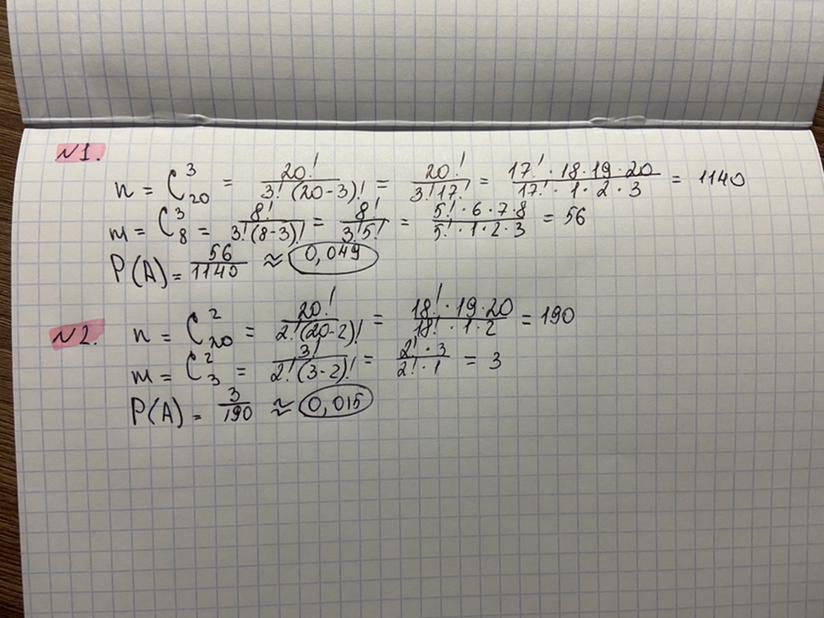 №1.
n = C₂₀³ = 20!/3!(20-3)! = 20!/3!17! = 17!·18·19·20/17!·1·2·3 = 1140
m = C₈³ = 8!/3!(8-3)! = 8!/3!5! = 5!·6·7·8/5!·1·2·3 = 56
P(A) = 56/1140 ≈ 0,049
№2. n = C₂₀² = 20!/2!(20-2)! = 18!·19·20/18!·1·2 = 190
m = C₃² = 3!/2!(3-2)! = 2!·3/2!·1 = 3
P(A) = 3/190 ≈ 0,015